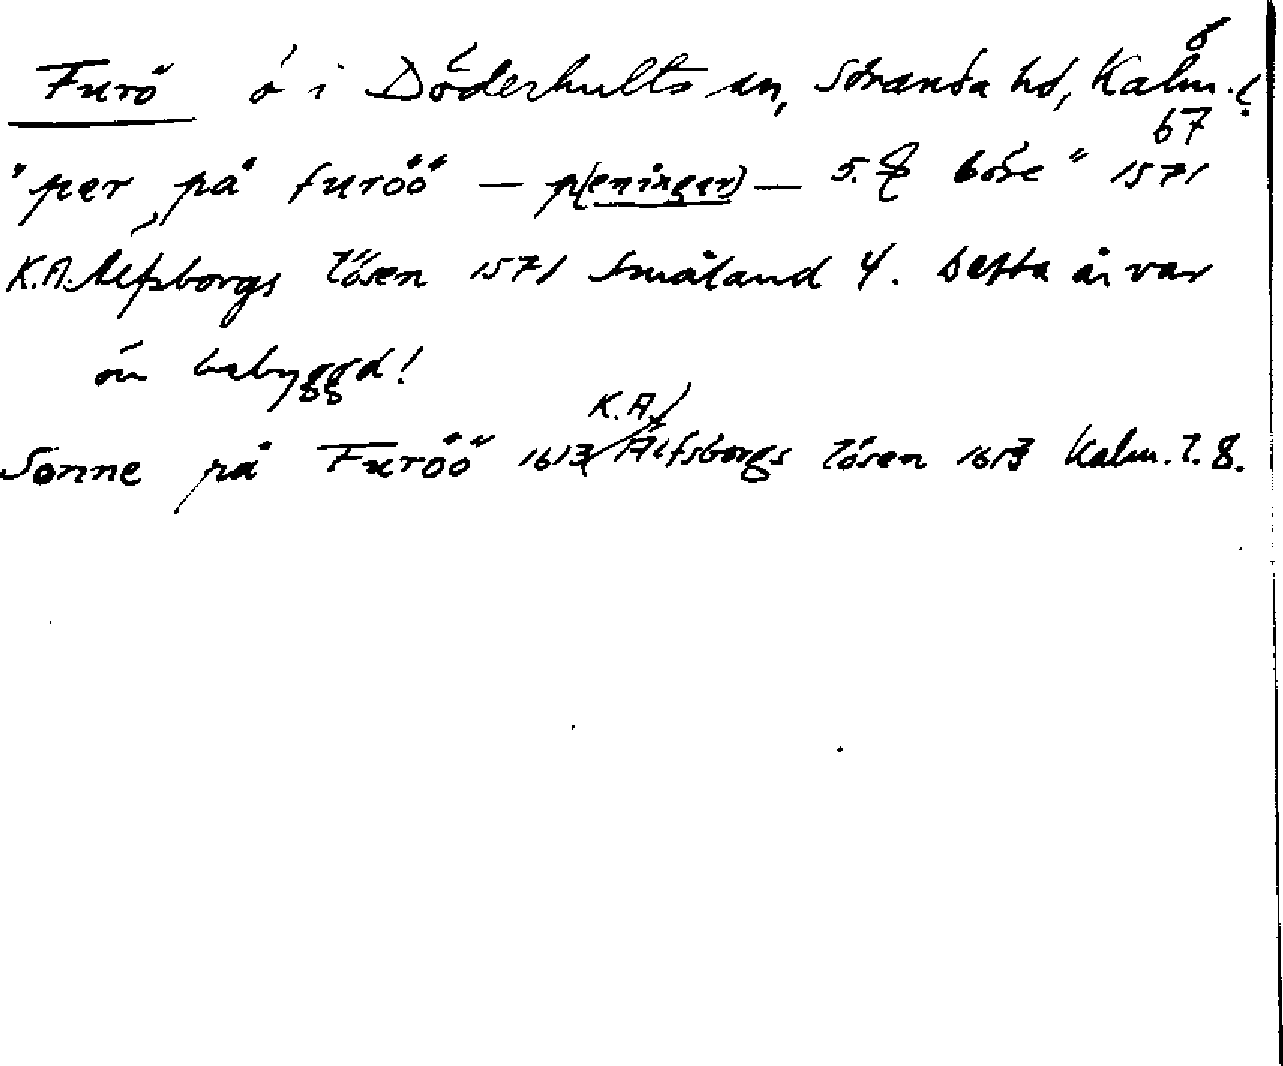 Furö ö i Döderhults sn, Stranda hd, Kalm. l.
67
"per på furöö — p(eninger) — 5. böre" 1571
K.A. Elfsborgs lösen 1571 Småland 4. Detta år var
ön bebyggd!
K.A.
Sonne på Furöö 1613 Älfsborgs lösen 1613 Kalm. l. 8.